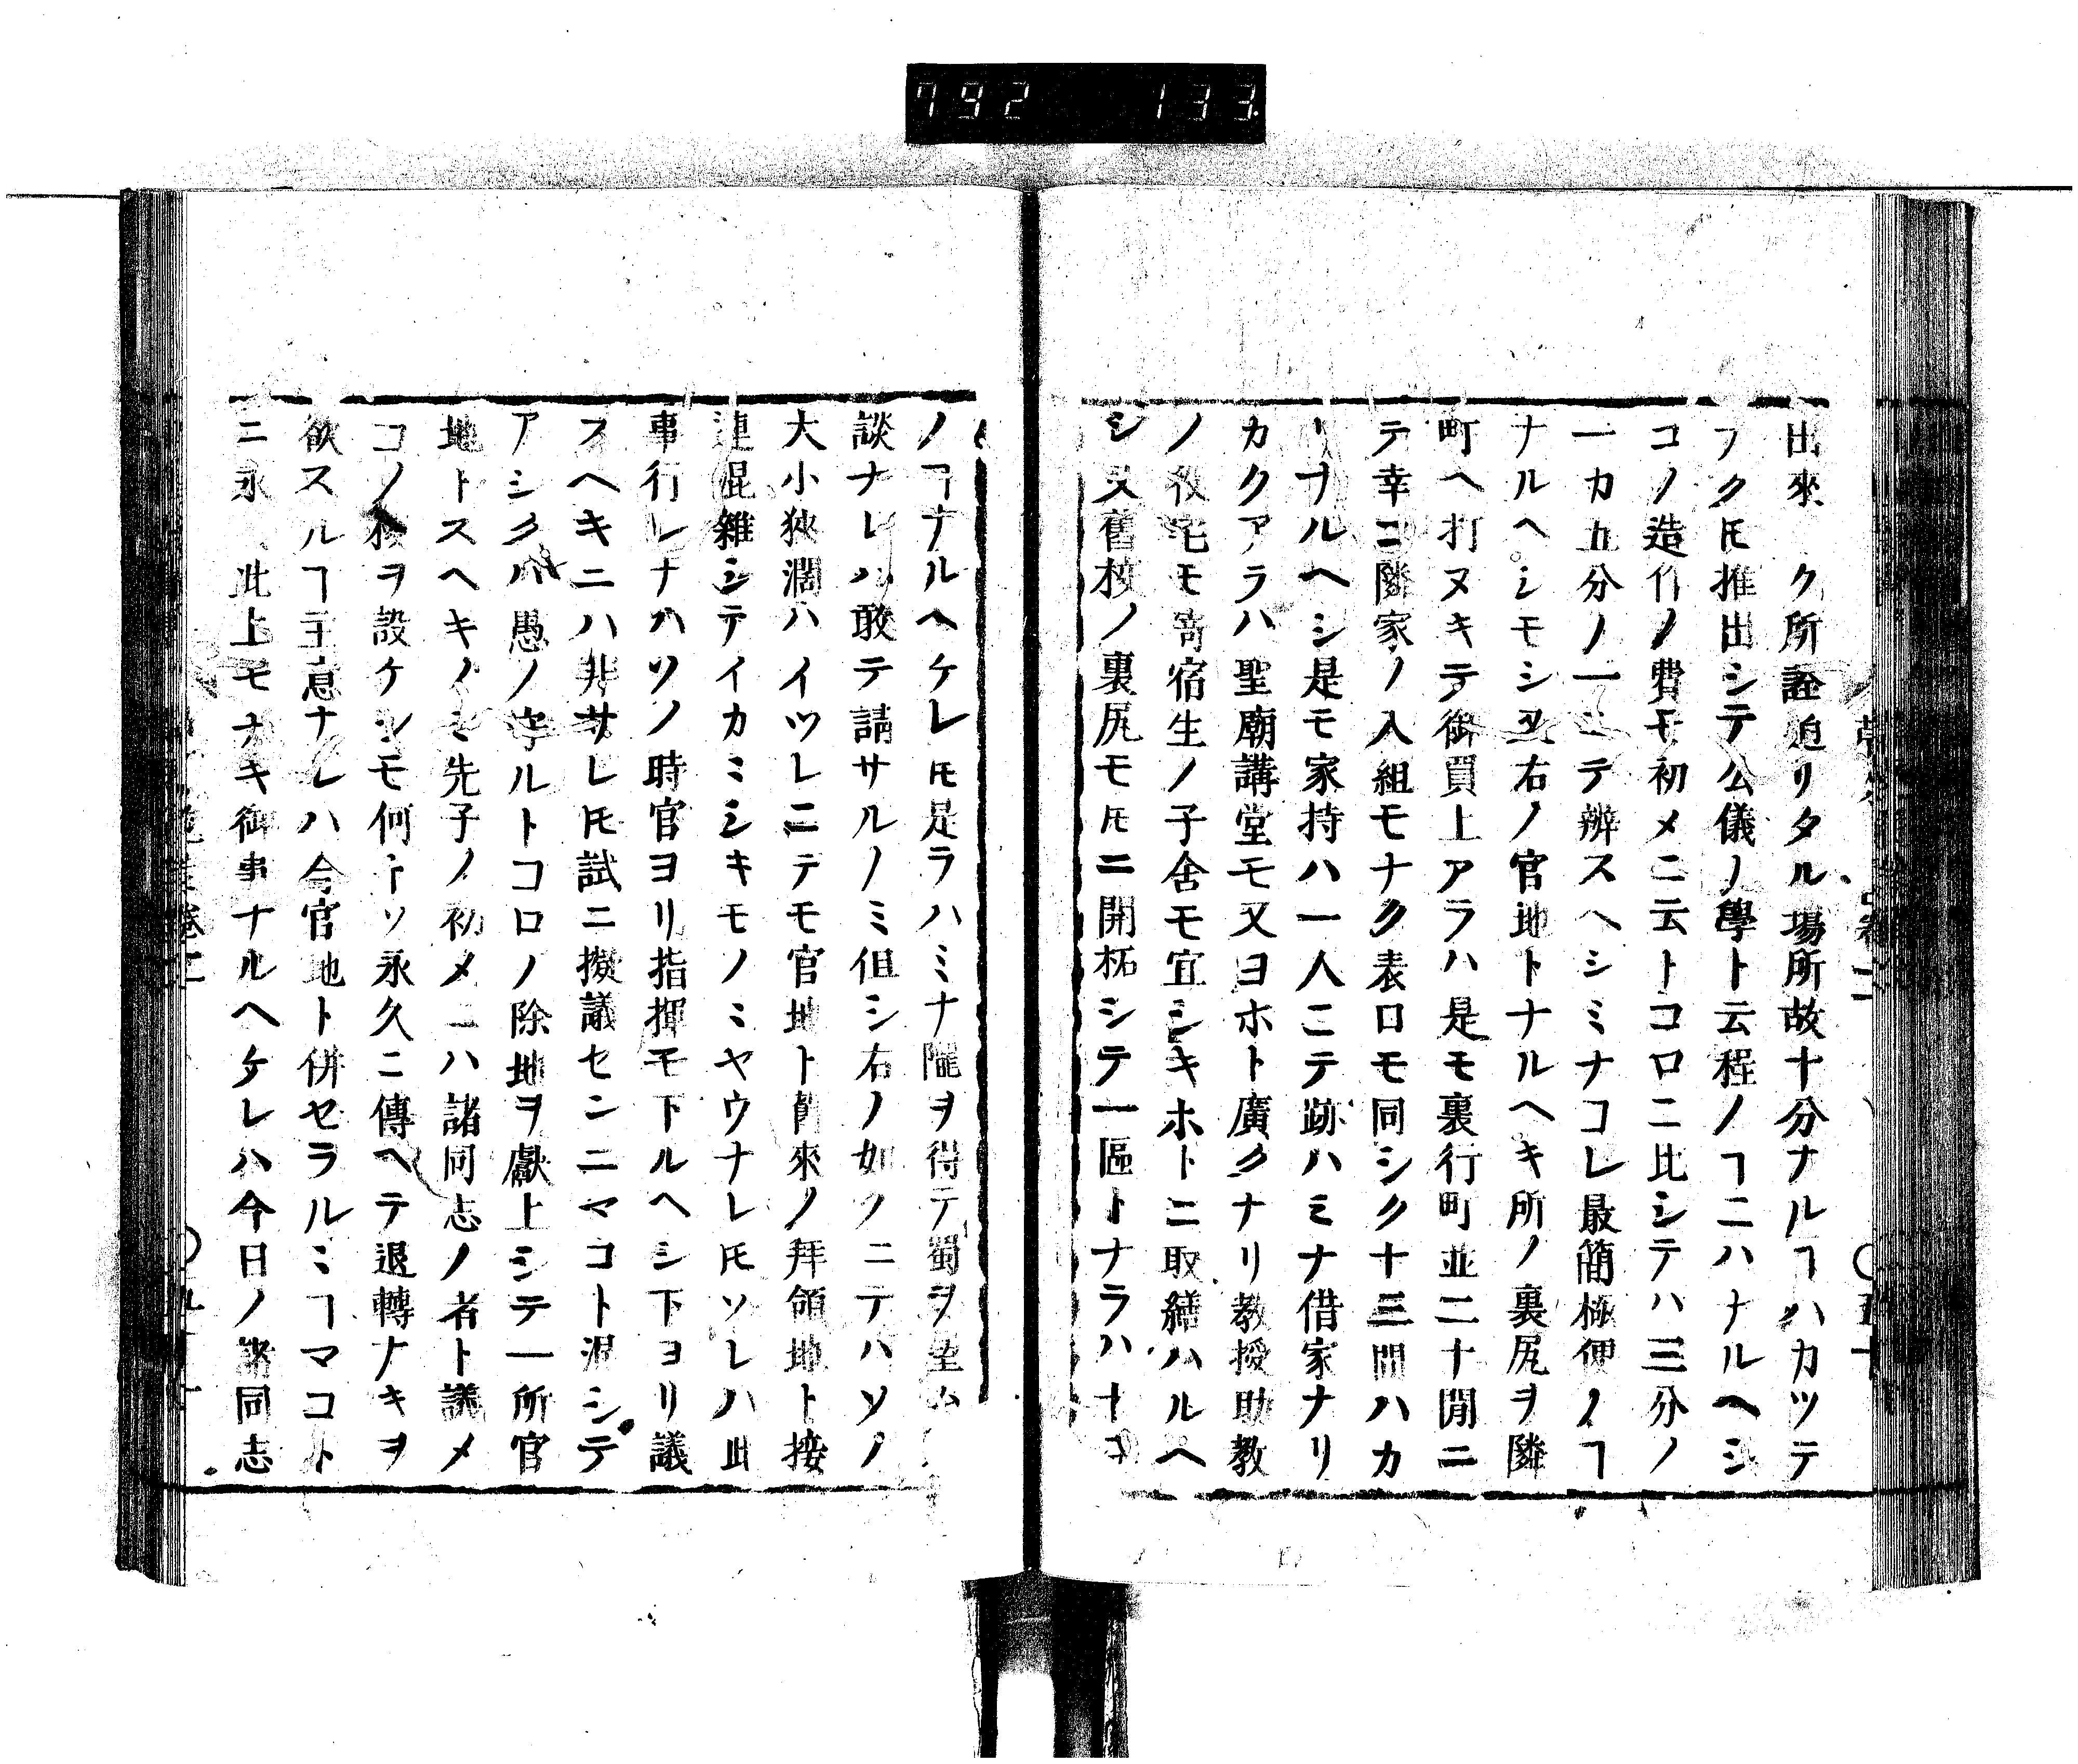 792 133
出來 ク所詮迫リタル場所故十分ナルヿハカツテ
フクモ推出シテ公儀ノ學ト云程ノヿニハナルヘシ
コノ造作ノ費モ初メニ云トコロニ比シテハ三分ノ
一カ五分ノ一ニテ辨スヘシミナコレ最簡極便ノヿ
ナルヘシモシ又右ノ官地トナルヘキ所ノ裏尻ヲ隣
町ヘ打ヌキテ御買上アラハ是モ裏行町並二十間ニ
テ幸ニ隣家ノ入組モナク表口モ同シク十三間ハカ
リナルヘシ是モ家持ハ一人ニテ跡ハミナ借家ナリ
カクアラハ聖廟講堂モ又ヨホト廣クナリ教授助教
ノ役宅モ寄宿生ノ子舍モ宜シキホトニ取繕ハルヘ
シ又舊校ノ裏尻モ𪜈ニ開柘シテ一區トナラハ十
ノヿナルヘケレ𪜈是ラハミナ隴ヲ得テ蜀ヲ望ム
談ナレハ敢テ請サルノミ但シ右ノ如クニテハソノ
大小狹濶ハイツレニテモ官地ト舊來ノ拜領地ト接
連混雜シテイカミシキモノミヤウナレ𪜈ソレハ此
事行レナハソノ時官ヨリ指揮モ下ルヘシ下ヨリ議
スヘキニハ非サレ𪜈試ニ擬議センニマコト混シテ
アシクハ愚ノ守ルトコロノ除地ヲ獻上シテ一所官
地トスヘキノミ先子ノ初メニハ諸同志ノ者ト議メ
コノ校ヲ設ケシモ何トソ永久ニ傳ヘテ退轉ナキヲ
欲スルヿ主意ナレハ今官地ト併セラルミヿマコト
ニ永 此上モナキ御事ナルヘケレハ今日ノ諸同志